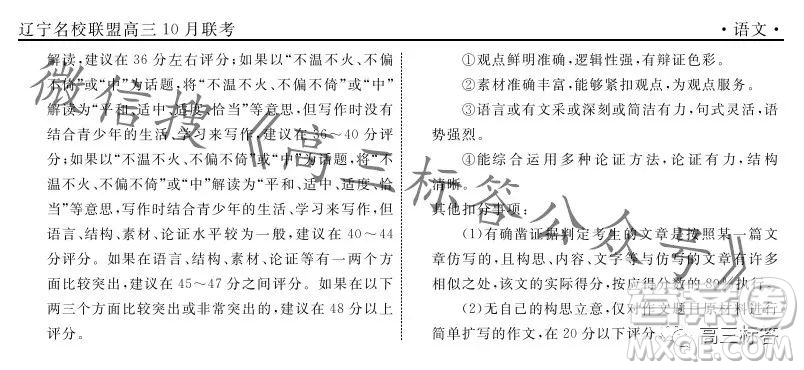 辽宁名校联盟高三10月联考
·语文·
解读，建议在36分左右评分；如果以“不温不火、不偏
不倚”或“中”为话题，将“不温不火、不偏不倚”或“中”
解读为“平和、适中、适度、恰当”等意思，但写作时没有
结合青少年的生活、学习来写作，建议在36～40分评
分；如果以“不温不火、不偏不倚”或“中”为话题，将“不
温不火、不偏不倚”或“中”解读为“平和、适中、适度、恰
当”等意思，写作时结合青少年的生活、学习来写作，但
语言、结构、素材、论证水平较为一般，建议在40～44
分评分。如果在语言、结构、素材、论证等某一个方面
比较突出，建议在45～47分之间评分。如果在以下
两三个方面比较突出或非常突出的，建议在48分以上
评分。
①观点鲜明准确，逻辑性强，有辩证色彩。
②素材准确丰富，能够紧扣观点，为观点服务。
③语言或有文采或深刻或简洁有力，句式灵活，语
势强烈。
④能综合运用多种论证方法，论证有力，结构
清晰。
其他扣分事项：
(1)有确凿证据判定考生的文章是按照某一篇文
章仿写的，且构思、内容、文字等与仿写的文章有许多
相似之处，该文的实际得分，按应得分数的80%执行。
(2)无自己的构思立意，仅对作文题目原材料进行
简单扩写的作文，在20分以下评分。
微信搜《高三标答公众号》
高三标答
答案圈
MXQE.COM